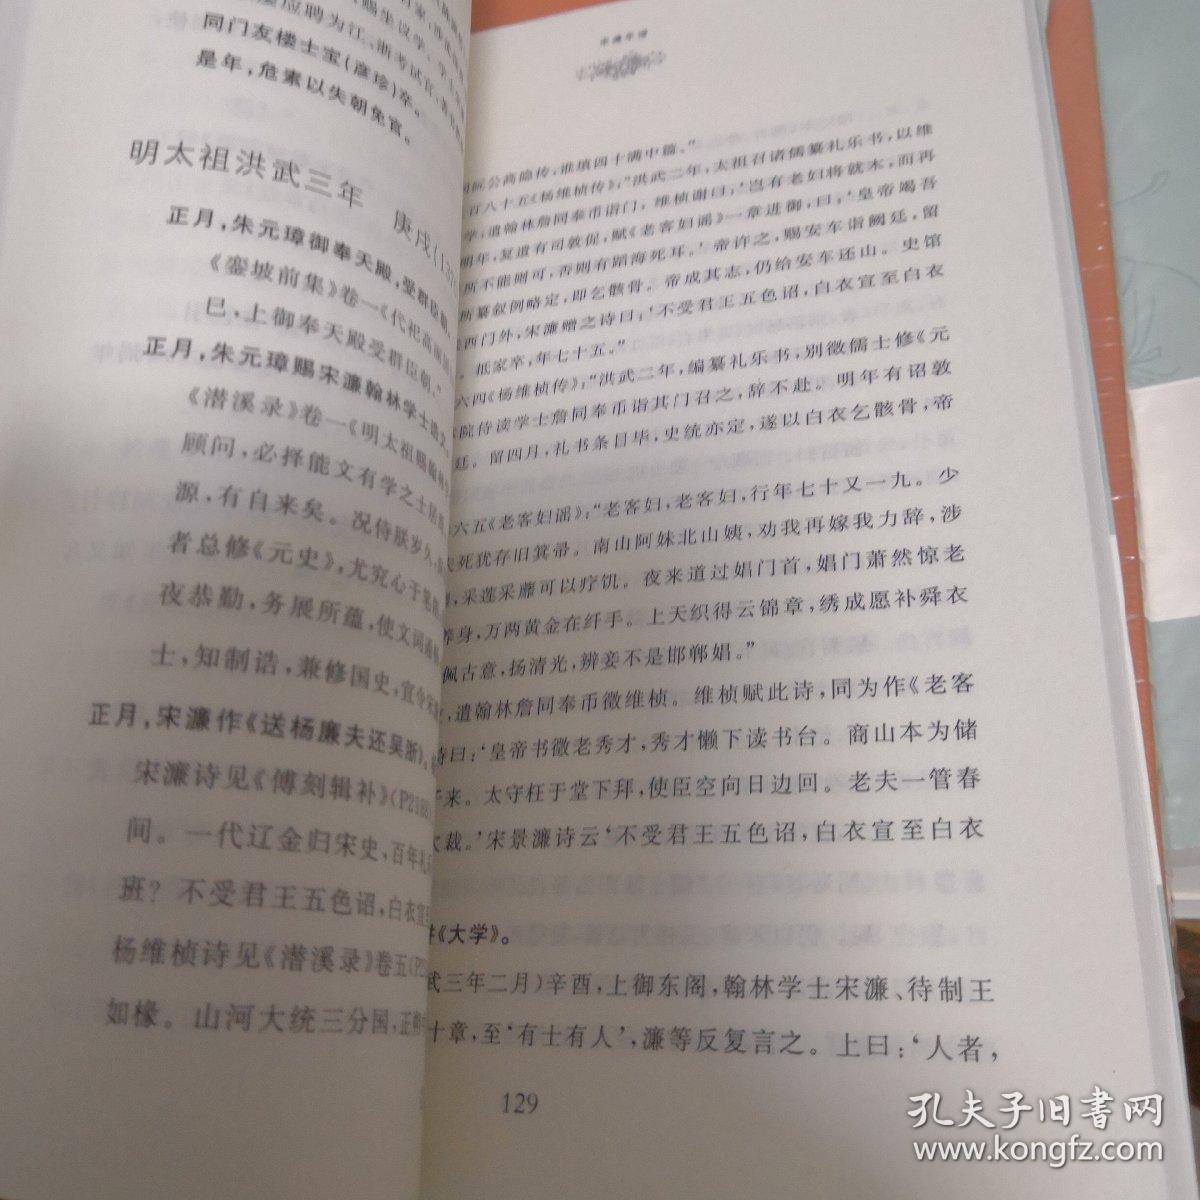 应聘为江、浙考试官
同门友楼士宝(彦珍)卒。
是年，危素以失朝免官。
明太祖洪武三年 庚戌
正月，朱元璋御奉天殿，受群臣朝
《銮坡前集》卷一《代祀高丽
巳，上御奉天殿受群臣朝。”
正月，朱元璋赐宋濂翰林学士诰文
《潜溪录》卷一《明太祖赐翰林
顾问，必择能文有学之士居
源，有自来矣。况侍朕岁久
者总修《元史》，尤究心于笔
夜恭勤，务展所蕴，使文词
士，知制诰，兼修国史，宜令宋
正月，宋濂作《送杨廉夫还吴浙》
宋濂诗见《傅刻辑补》(P218
间。一代辽金归宋史，百年礼
班？不受君王五色诏，白衣宣
杨维桢诗见《潜溪录》卷五(P2
如椽。山河大统三分国，正
宋濂年谱
公商隐传，谁填四十满中篇。”
百八十五《杨维桢传》：“洪武二年，太祖召诸儒纂礼乐书，以维
学，遣翰林詹同奉币诣门，维桢谢曰：‘岂有老妇将就木，而再
明年，复遣有司敦促，赋《老客妇谣》一章进御，曰：‘皇帝竭吾
所不能则可，否则有蹈海死耳。’帝许之，赐安车诣阙廷，留
所纂叙例略定，即乞骸骨。帝成其志，仍给安车还山。史馆
西门外，宋濂赠之诗曰：‘不受君王五色诏，白衣宣至白衣
抵家卒，年七十五。”
六四《杨维桢传》：“洪武二年，编纂礼乐书，别徵儒士修《元
院侍读学士詹同奉币诣其门召之，辞不赴。明年有诏敦
廷。留四月，礼书条目毕，史统亦定，遂以白衣乞骸骨，帝
六五《老客妇谣》：“老客妇，老客妇，行年七十又一九。少
夫死犹存旧箕帚。南山阿妹北山姨，劝我再嫁我力辞，涉
，采莲采蘼可以疗饥。夜来道过娼门首，娼门萧然惊老
养身，万两黄金在纤手。上天织得云锦章，绣成愿补舜衣
佩古意，扬清光，辨妾不是邯郸娼。”
，遣翰林詹同奉币徵维桢。维桢赋此诗，同为作《老客
诗曰：‘皇帝书徵老秀才，秀才懒下读书台。商山本为储
于来。太守枉于堂下拜，使臣空向日边回。老夫一管春
裁。’宋景濂诗云‘不受君王五色诏，白衣宣至白衣
《大学》。
武三年二月）辛酉，上御东阁，翰林学士宋濂、待制王
十章，至‘有士有人’，濂等反复言之。上曰：‘人者，
129
孔夫子旧书网
www.kongfz.com